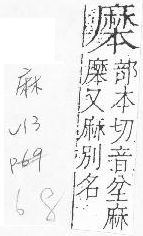 部本切音坌麻
又麻別名
麻
V13
P69
6 8